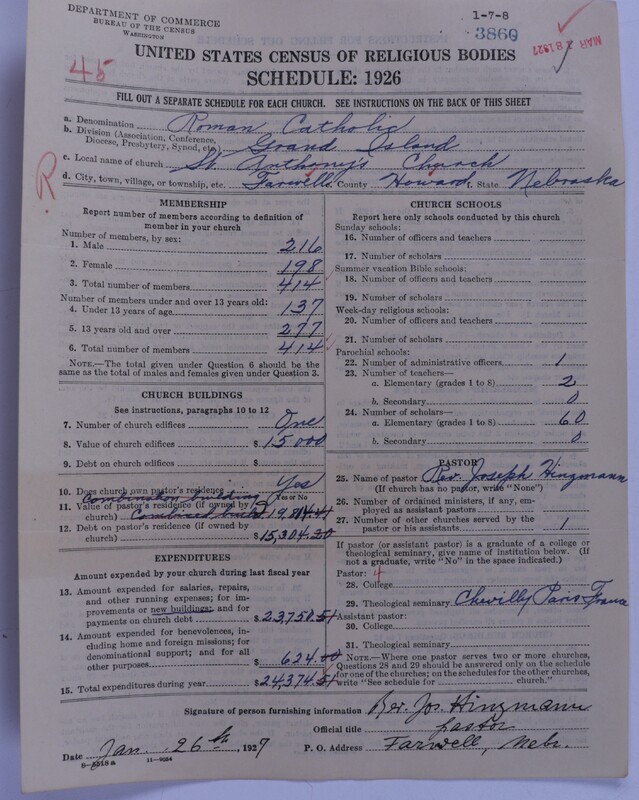 DEPARTMENT OF COMMERCE
BUREAU OF THE CENSUS
WASHINGTON
1-7-8
3860
MAR 28 1927
45
UNITED STATES CENSUS OF RELIGIOUS BODIES
SCHEDULE: 1926
FILL OUT A SEPARATE SCHEDULE FOR EACH CHURCH. SEE INSTRUCTIONS ON THE BACK OF THIS SHEET
a. Denomination Roman Catholic
b. Division (Association, Conference, Diocese, Presbytery, Synod, etc.) Grand Island
c. Local name of church St. Anthony's Church
d. City, town, village, or township, etc. Farwell e. County Howard f. State Nebraska
R
MEMBERSHIP
Report number of members according to definition of
member in your church
Number of members, by sex:
1. Male 216
2. Female 198
3. Total number of members 414
Number of members under and over 13 years old:
4. Under 13 years of age 137
5. 13 years old and over 277
6. Total number of members 414
NOTE.—The total given under Question 6 should be the
same as the total of males and females given under Question 3.
CHURCH BUILDINGS
See instructions, paragraphs 10 to 12
7. Number of church edifices One
8. Value of church edifices $15000
9. Debt on church edifices $
10. Does church own pastor's residence Yes
Yes or No
Combination building
11. Value of pastor's residence (if owned by
church) Combined build.
12. Debt on pastor's residence (if owned by
church) $15,304.20
EXPENDITURES
Amount expended by your church during last fiscal year
13. Amount expended for salaries, repairs,
and other running expenses; for im-
provements or new buildings; and for
payments on church debt $23,750.51
14. Amount expended for benevolences, in-
cluding home and foreign missions; for
denominational support; and for all
other purposes $624.00
15. Total expenditures during year $24,374.51
CHURCH SCHOOLS
Report here only schools conducted by this church
Sunday schools:
16. Number of officers and teachers
17. Number of scholars
Summer vacation Bible schools:
18. Number of officers and teachers
19. Number of scholars
Week-day religious schools:
20. Number of officers and teachers
21. Number of scholars
Parochial schools:
22. Number of administrative officers 1
23. Number of teachers—
a. Elementary (grades 1 to 8) 2
b. Secondary 0
24. Number of scholars—
a. Elementary (grades 1 to 8) 60
b. Secondary 0
PASTOR
25. Name of pastor Rev. Joseph Hinzmann
(If church has no pastor, write "None")
26. Number of ordained ministers, if any, em-
ployed as assistant pastors
27. Number of other churches served by the
pastor or his assistants 1
If pastor (or assistant pastor) is a graduate of a college or
theological seminary, give name of institution below. (If
not a graduate, write "No" in the space indicated.)
Pastor: 4
28. College
29. Theological seminary Chevilly Paris France
Assistant pastor:
30. College
31. Theological seminary
NOTE.—Where one pastor serves two or more churches,
Questions 28 and 29 should be answered only on the schedule
for one of the churches; on the schedules for the other churches,
write "See schedule for church."
Signature of person furnishing information Rev. Jos. Hinzmann
Official title pastor
Date Jan. 26th, 1927 P. O. Address Farwell, Nebr.
8-5518a 11-9034